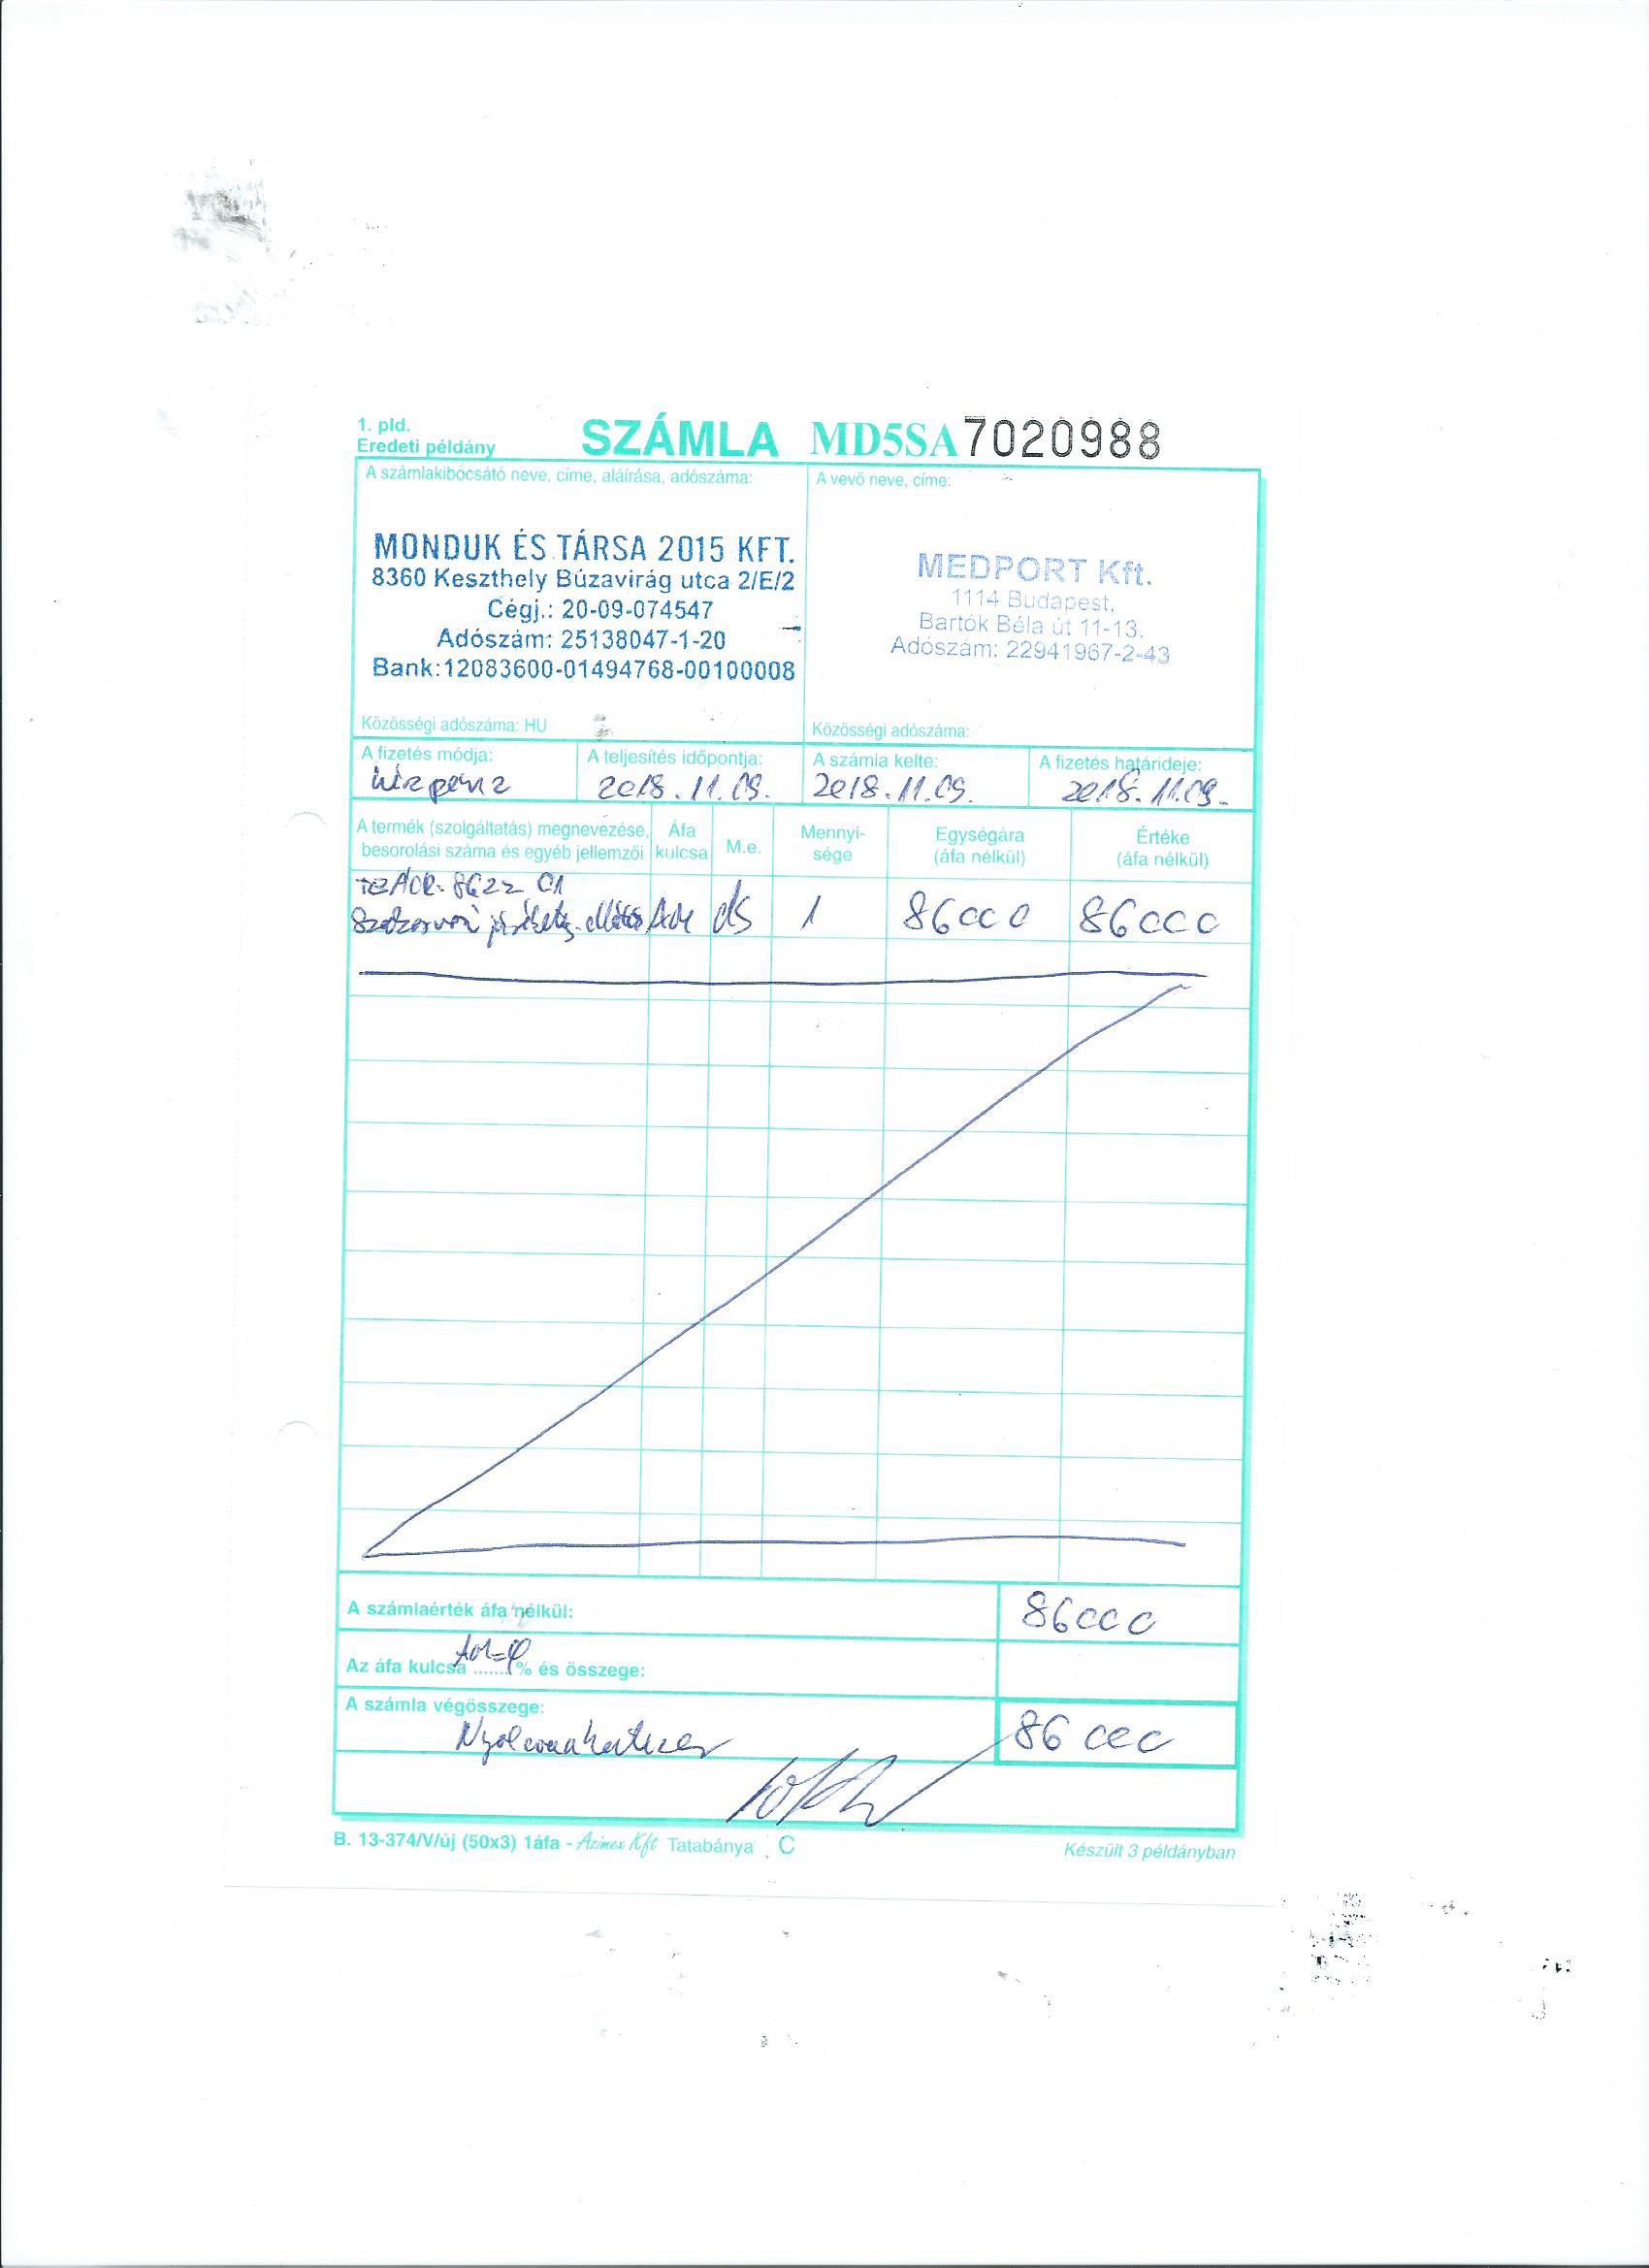 1. pld.
Eredeti példány
SZÁMLA MD5SA 7020988
A számlakibocsátó neve, címe, aláírása, adószáma:
MONDUK ÉS TÁRSA 2015 KFT.
8360 Keszthely Búzavirág utca 2/E/2
Cégj.: 20-09-074547
Adószám: 25138047-1-20
Bank:12083600-01494768-00100008
Közösségi adószáma: HU
A vevő neve, címe:
MEDPORT Kft.
1114 Budapest,
Bartók Béla út 11-13.
Adószám: 22941967-2-43
Közösségi adószáma:
A fizetés módja: A teljesítés időpontja: A számla kelte: A fizetés határideje:
készpénz 2018.11.09. 2018.11.09. 2018.11.09.
A termék (szolgáltatás) megnevezése, besorolási száma és egyéb jellemzői
Áfa kulcsa
M.e.
Mennyi-sége
Egységára (áfa nélkül)
Értéke (áfa nélkül)
TEÁOR. 8622 01
ellátás AM db 1 86000 86000
A számlaérték áfa nélkül: 86000
Az áfa kulcsa AM=0 % és összege:
A számla végösszege:
Nyolcvanhatezer 86 000
B. 13-374/V/új (50x3) 1áfa - Azimex Kft Tatabánya C
Készült 3 példányban